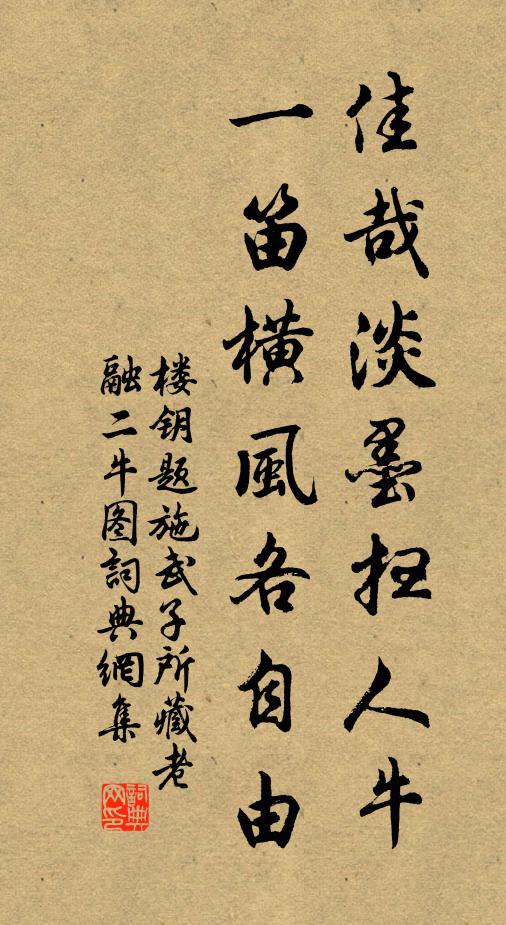 佳哉淡墨扫人牛
一笛橫風各自由
楼钥题施武子所藏老
融二牛图詞典網集
詞典
网印